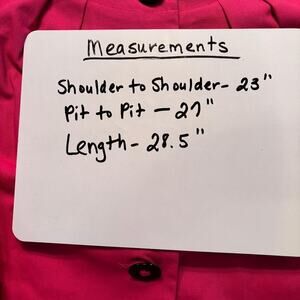 Measurements
Shoulder to Shoulder- 23"
Pit to Pit - 27"
Length- 28.5"